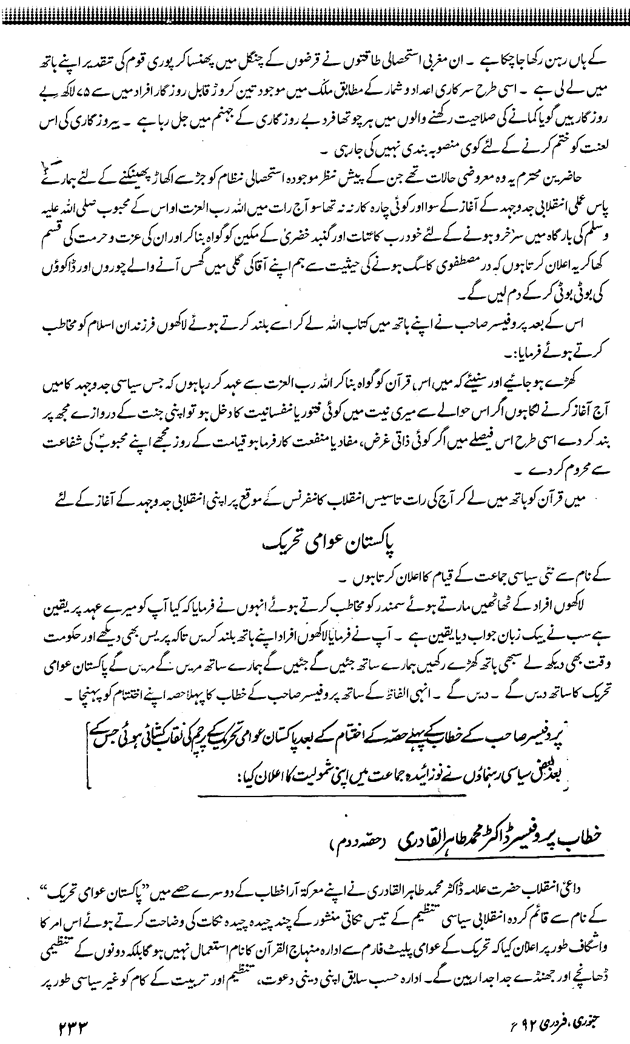 کے ہاں رہن رکھا جا چکا ہے ۔ ان مغربی استحصالی طاقتوں نے قرضوں کے چنگل میں پھنسا کر پوری قوم کی تقدیر اپنے ہاتھ
میں لے لی ہے ۔ اسی طرح سرکاری اعداد و شمار کے مطابق ملک میں موجود تین کروڑ قابل روزگار افراد میں سے ۷۵ لاکھ بے
روزگار ہیں گویا کمانے کی صلاحیت رکھنے والوں میں ہر چوتھا فرد بے روزگاری کے جہنم میں جل رہا ہے ۔ بیروزگاری کی اس
لعنت کو ختم کرنے کے لئے کوی منصوبہ بندی نہیں کی جا رہی ۔
حاضرین محترم یہ وہ معروضی حالات تھے جن کے پیش نظر موجودہ استحصالی نظام کو جڑ سے اکھاڑ پھینکنے کے لئے ہمارے
پاس عملی انقلابی جدوجہد کے آغاز کے سوا اور کوئی چارہ کار نہ تھا سو آج رات میں اللہ رب العزت اور اس کے محبوب صلی اللہ علیہ
وسلم کی بارگاہ میں سرخرو ہونے کے لئے خود رب کائنات اور گنبد خضریٰ کے مکین کو گواہ بنا کر اور ان کی عزت و حرمت کی قسم
کھا کر یہ اعلان کرتا ہوں کہ در مصطفوی کا سگ ہونے کی حیثیت سے ہم اپنے آقا کی گلی میں گھس آنے والے چوروں اور ڈاکوؤں
کی بوٹی بوٹی کر کے دم لیں گے ۔
اس کے بعد پروفیسر صاحب نے اپنے ہاتھ میں کتاب اللہ لے کر اسے بلند کرتے ہوئے لاکھوں فرزندان اسلام کو مخاطب
کرتے ہوئے فرمایا:۔
کھڑے ہو جائیے اور سنیئے کہ میں اس قرآن کو گواہ بنا کر اللہ رب العزت سے عہد کر رہا ہوں کہ جس سیاسی جدوجہد کا میں
آج آغاز کرنے لگا ہوں اگر اس حوالے سے میری نیت میں کوئی فتور یا نفسانیت کا دخل ہو تو اپنی جنت کے دروازے مجھ پر
بند کر دے اسی طرح اس فیصلے میں اگر کوئی ذاتی غرض، مفاد یا منفعت کارفرما ہو قیامت کے روز مجھے اپنے محبوبؐ کی شفاعت
سے محروم کر دے ۔
میں قرآن کو ہاتھ میں لے کر آج کی رات تاسیس انقلاب کانفرنس کے موقع پر اپنی انقلابی جدوجہد کے آغاز کے لئے
پاکستان عوامی تحریک
کے نام سے نئی سیاسی جماعت کے قیام کا اعلان کرتا ہوں ۔
لاکھوں افراد کے ٹھاٹھیں مارتے ہوئے سمندر کو مخاطب کرتے ہوئے انہوں نے فرمایا کہ کیا آپ کو میرے عہد پر یقین
ہے سب نے بیک زبان جواب دیا یقین ہے ۔ آپ نے فرمایا لاکھوں افراد اپنے ہاتھ بلند کریں تاکہ پریس بھی دیکھے اور حکومت
وقت بھی دیکھ لے سبھی ہاتھ کھڑے رکھیں ہمارے ساتھ جئیں گے جئیں گے ہمارے ساتھ مریں گے مریں گے پاکستان عوامی
تحریک کا ساتھ دیں گے ۔ دیں گے ۔ انہی الفاظ کے ساتھ پروفیسر صاحب کے خطاب کا پہلا حصہ اپنے اختتام کو پہنچا ۔
پروفیسر صاحب کے خطاب کے پہلے حصّہ کے اختتام کے بعد پاکستان عوامی تحریک کے پرچم کی نقاب کشائی ہوئی جس کے
بعد بعض سیاسی رہنماؤں نے نوزائیدہ جماعت میں اپنی شمولیت کا اعلان کیا:
خطاب پروفیسر ڈاکٹر محمد طاہر القادری (حصّہ دوم)
داعیٔ انقلاب حضرت علامہ ڈاکٹر محمد طاہر القادری نے اپنے معرکۃ آرا خطاب کے دوسرے حصے میں ”پاکستان عوامی تحریک“
کے نام سے قائم کردہ انقلابی سیاسی تنظیم کے تیس نکاتی منشور کے چند چیدہ چیدہ نکات کی وضاحت کرتے ہوئے اس امر کا
واشگاف طور پر اعلان کیا کہ تحریک کے عوامی پلیٹ فارم سے ادارہ منہاج القرآن کا نام استعمال نہیں ہو گا بلکہ دونوں کے تنظیمی
ڈھانچے اور جھنڈے جدا جدا رہیں گے۔ ادارہ حسب سابق اپنی دینی دعوت، تنظیم اور تربیت کے کام کو غیر سیاسی طور پر
جنوری، فروری ۹۲ء
۲۳۳